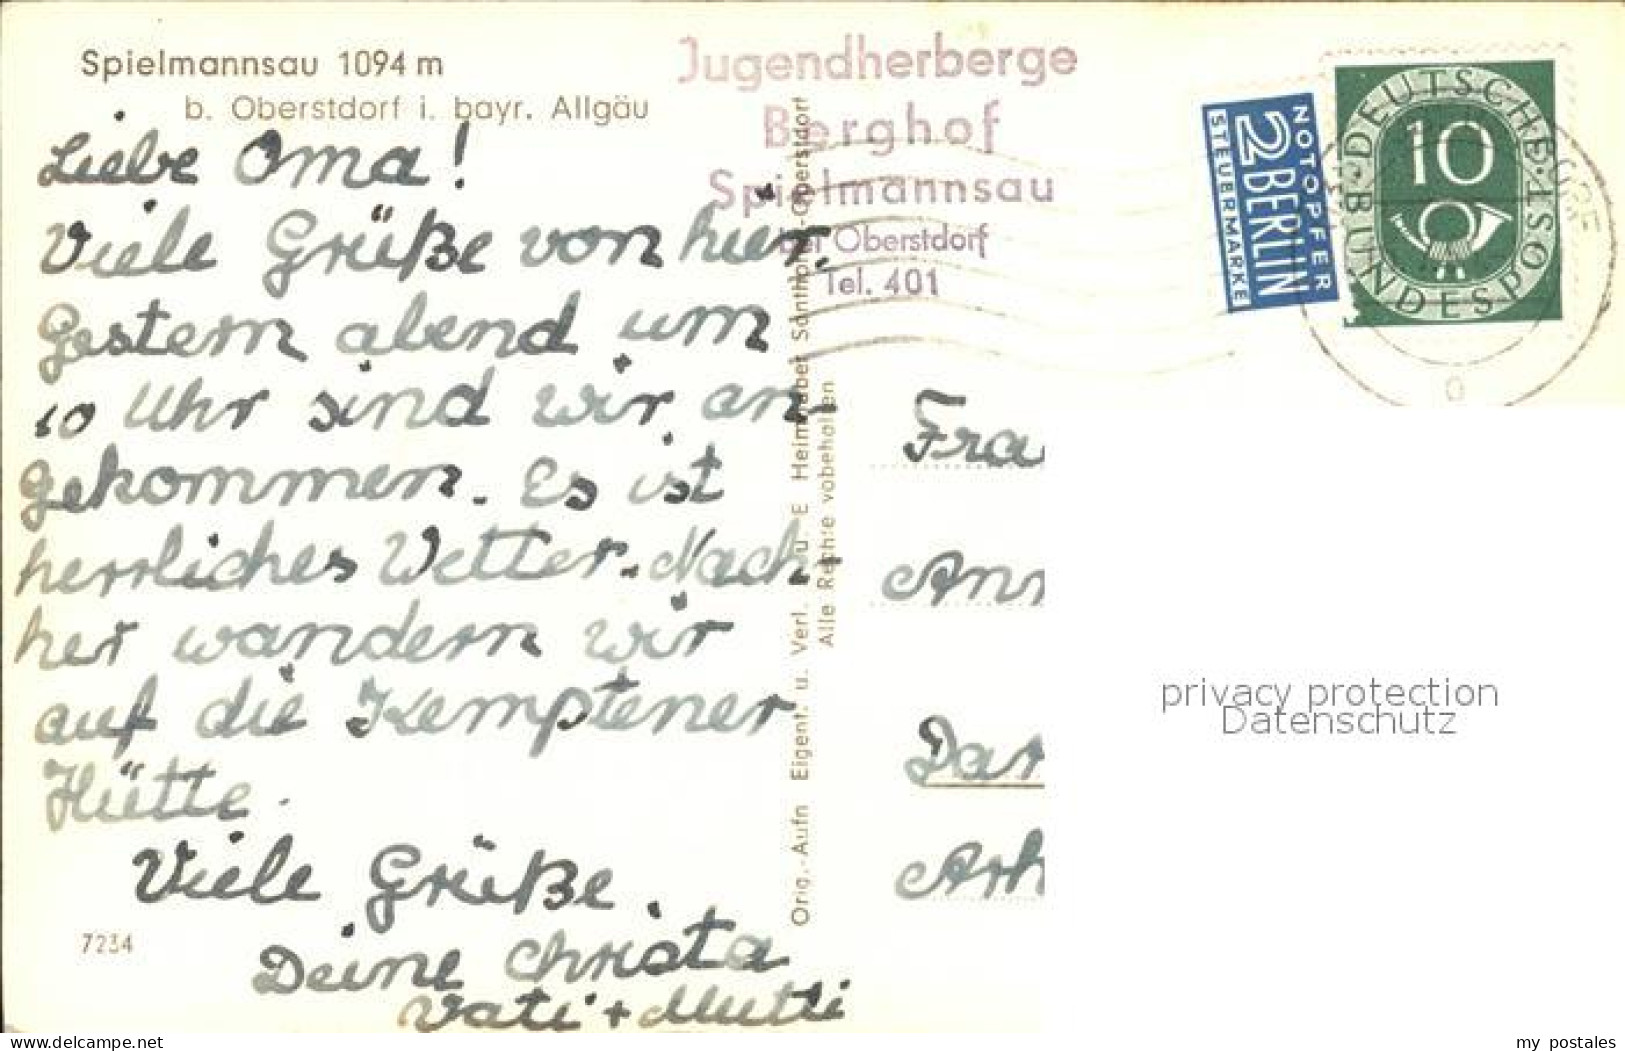 Spielmannsau 1094 m
b. Oberstdorf i. bayr. Allgäu
Liebe Oma!
Viele Grüße von hier.
Gestern abend um
10 Uhr sind wir an-
gekommen. Es ist
herrliches Wetter. Nach-
her wandern wir
auf die Kemptener
Hütte.
Viele Grüße.
Deine Christa
Vati + Mutti
7234
Orig.-Aufn Eigent. u. Verl. u. E Heimhuber Sonthofen-Oberstdorf
Alle Rechte vobehalten
Jugendherberge
Berghof
Spielmannsau
bei Oberstdorf
Tel. 401
NOTOPFER
2 BERLIN
STEUERMARKE
DEUTSCHE BUNDESPOST
10
a
Fra
Ann
Dar
Arh
privacy protection
Datenschutz
www.ak-ansichtskarten.de
my postales